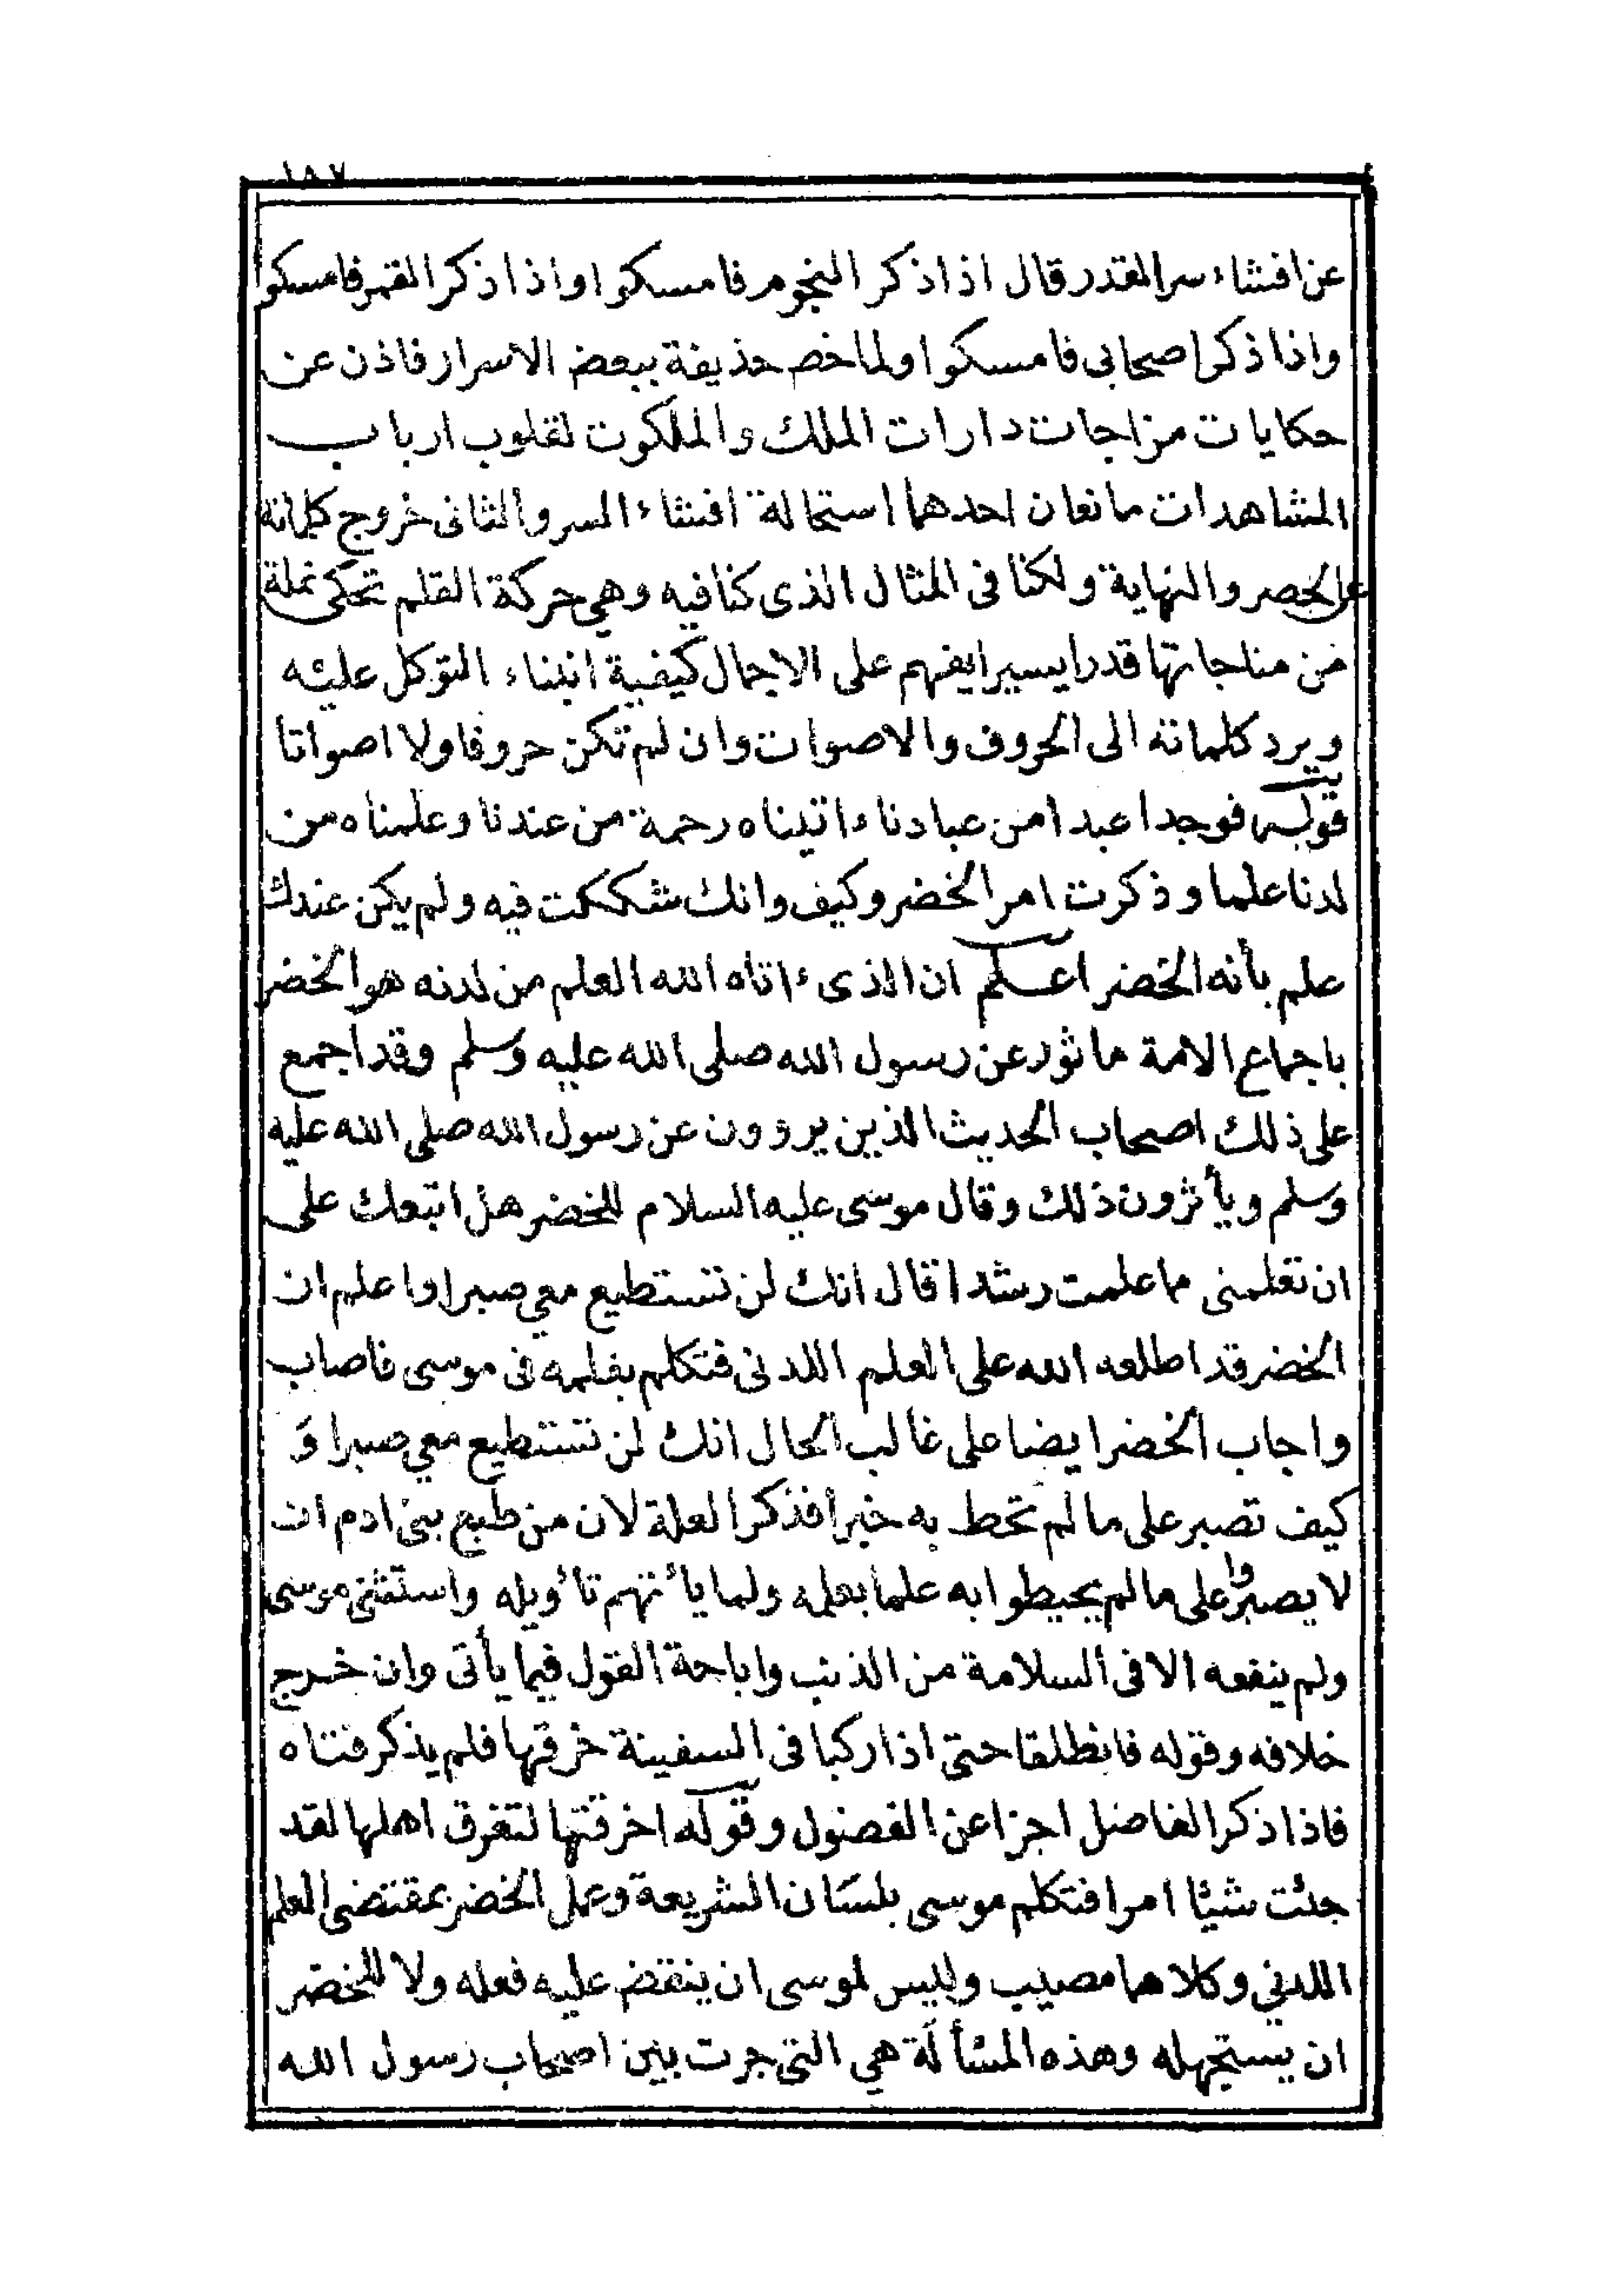 ١٨٧
عن افشاء سر القدر قال اذا ذكر النجوم فامسكوا واذا ذكر القمر فامسكوا
واذا ذكر اصحابى فامسكوا ولما خص حذيفة ببعض الاسرار فاذن عن
حكايات مزاجات دارات الملك والملكوت لقلوب ارباب
المشاهدات مانعان احدهما استحالة افشاء السر والثانى خروج كلماته
عن الحصر والنهاية ولكنا فى المثال الذى كنا فيه وهي حركة القلم تحكى نملة
من مناجاتها قدرا يسيرا يفهم على الاجمال كيفية انبناء التوكل عليه
ويرد كلماته الى الحروف والاصوات وان لم تكن حروفا ولا اصواتا
قوله فوجدا عبدا من عبادنا ءاتيناه رحمة من عندنا وعلمناه من
لدنا علما وذكرت امر الخضر وكيف وانك شككت فيه ولم يكن عندك
علم بأنه الخضر اعلم ان الذى ءاتاه الله العلم من لدنه هو الخضر
باجماع الامة ماثور عن رسول الله صلى الله عليه وسلم وقد اجمع
على ذلك اصحاب الحديث الذين يروون عن رسول الله صلى الله عليه
وسلم ويأثرون ذلك وقال موسى عليه السلام للخضر هل اتبعك على
ان تعلمنى مما علمت رشدا قال انك لن تستطيع معي صبرا واعلم ان
الخضر قد اطلعه الله على العلم اللدنى فتكلم بعلمه فى موسى فاصاب
واجاب الخضر ايضا على غالب الحال انك لن تستطيع معي صبرا و
كيف تصبر على ما لم تحط به خبرا فذكر العلة لان من طبع بنى ادم ان
لا يصبروا على ما لم يحيطوا به علما بعلمه ولما يأتهم تأويله واستثنى موسى
ولم ينفعه الا فى السلامة من الذنب واباحة القول فيما يأتى وان خرج
خلافه وقوله فانطلقا حتى اذا ركبا فى السفينة خرقها فلم يذكر فتاه
فاذا ذكر الفاضل اجزا عن الفضول وقوله اخرقتها لتغرق اهلها لقد
جئت شيئا امرا فتكلم موسى بلسان الشريعة وعمل الخضر بمقتضى العلم
اللدني وكلاهما مصيب وليس لموسى ان ينقض عليه فعله ولا للخضر
ان يستجهله وهذه المسألة هي التى جرت بين اصحاب رسول الله